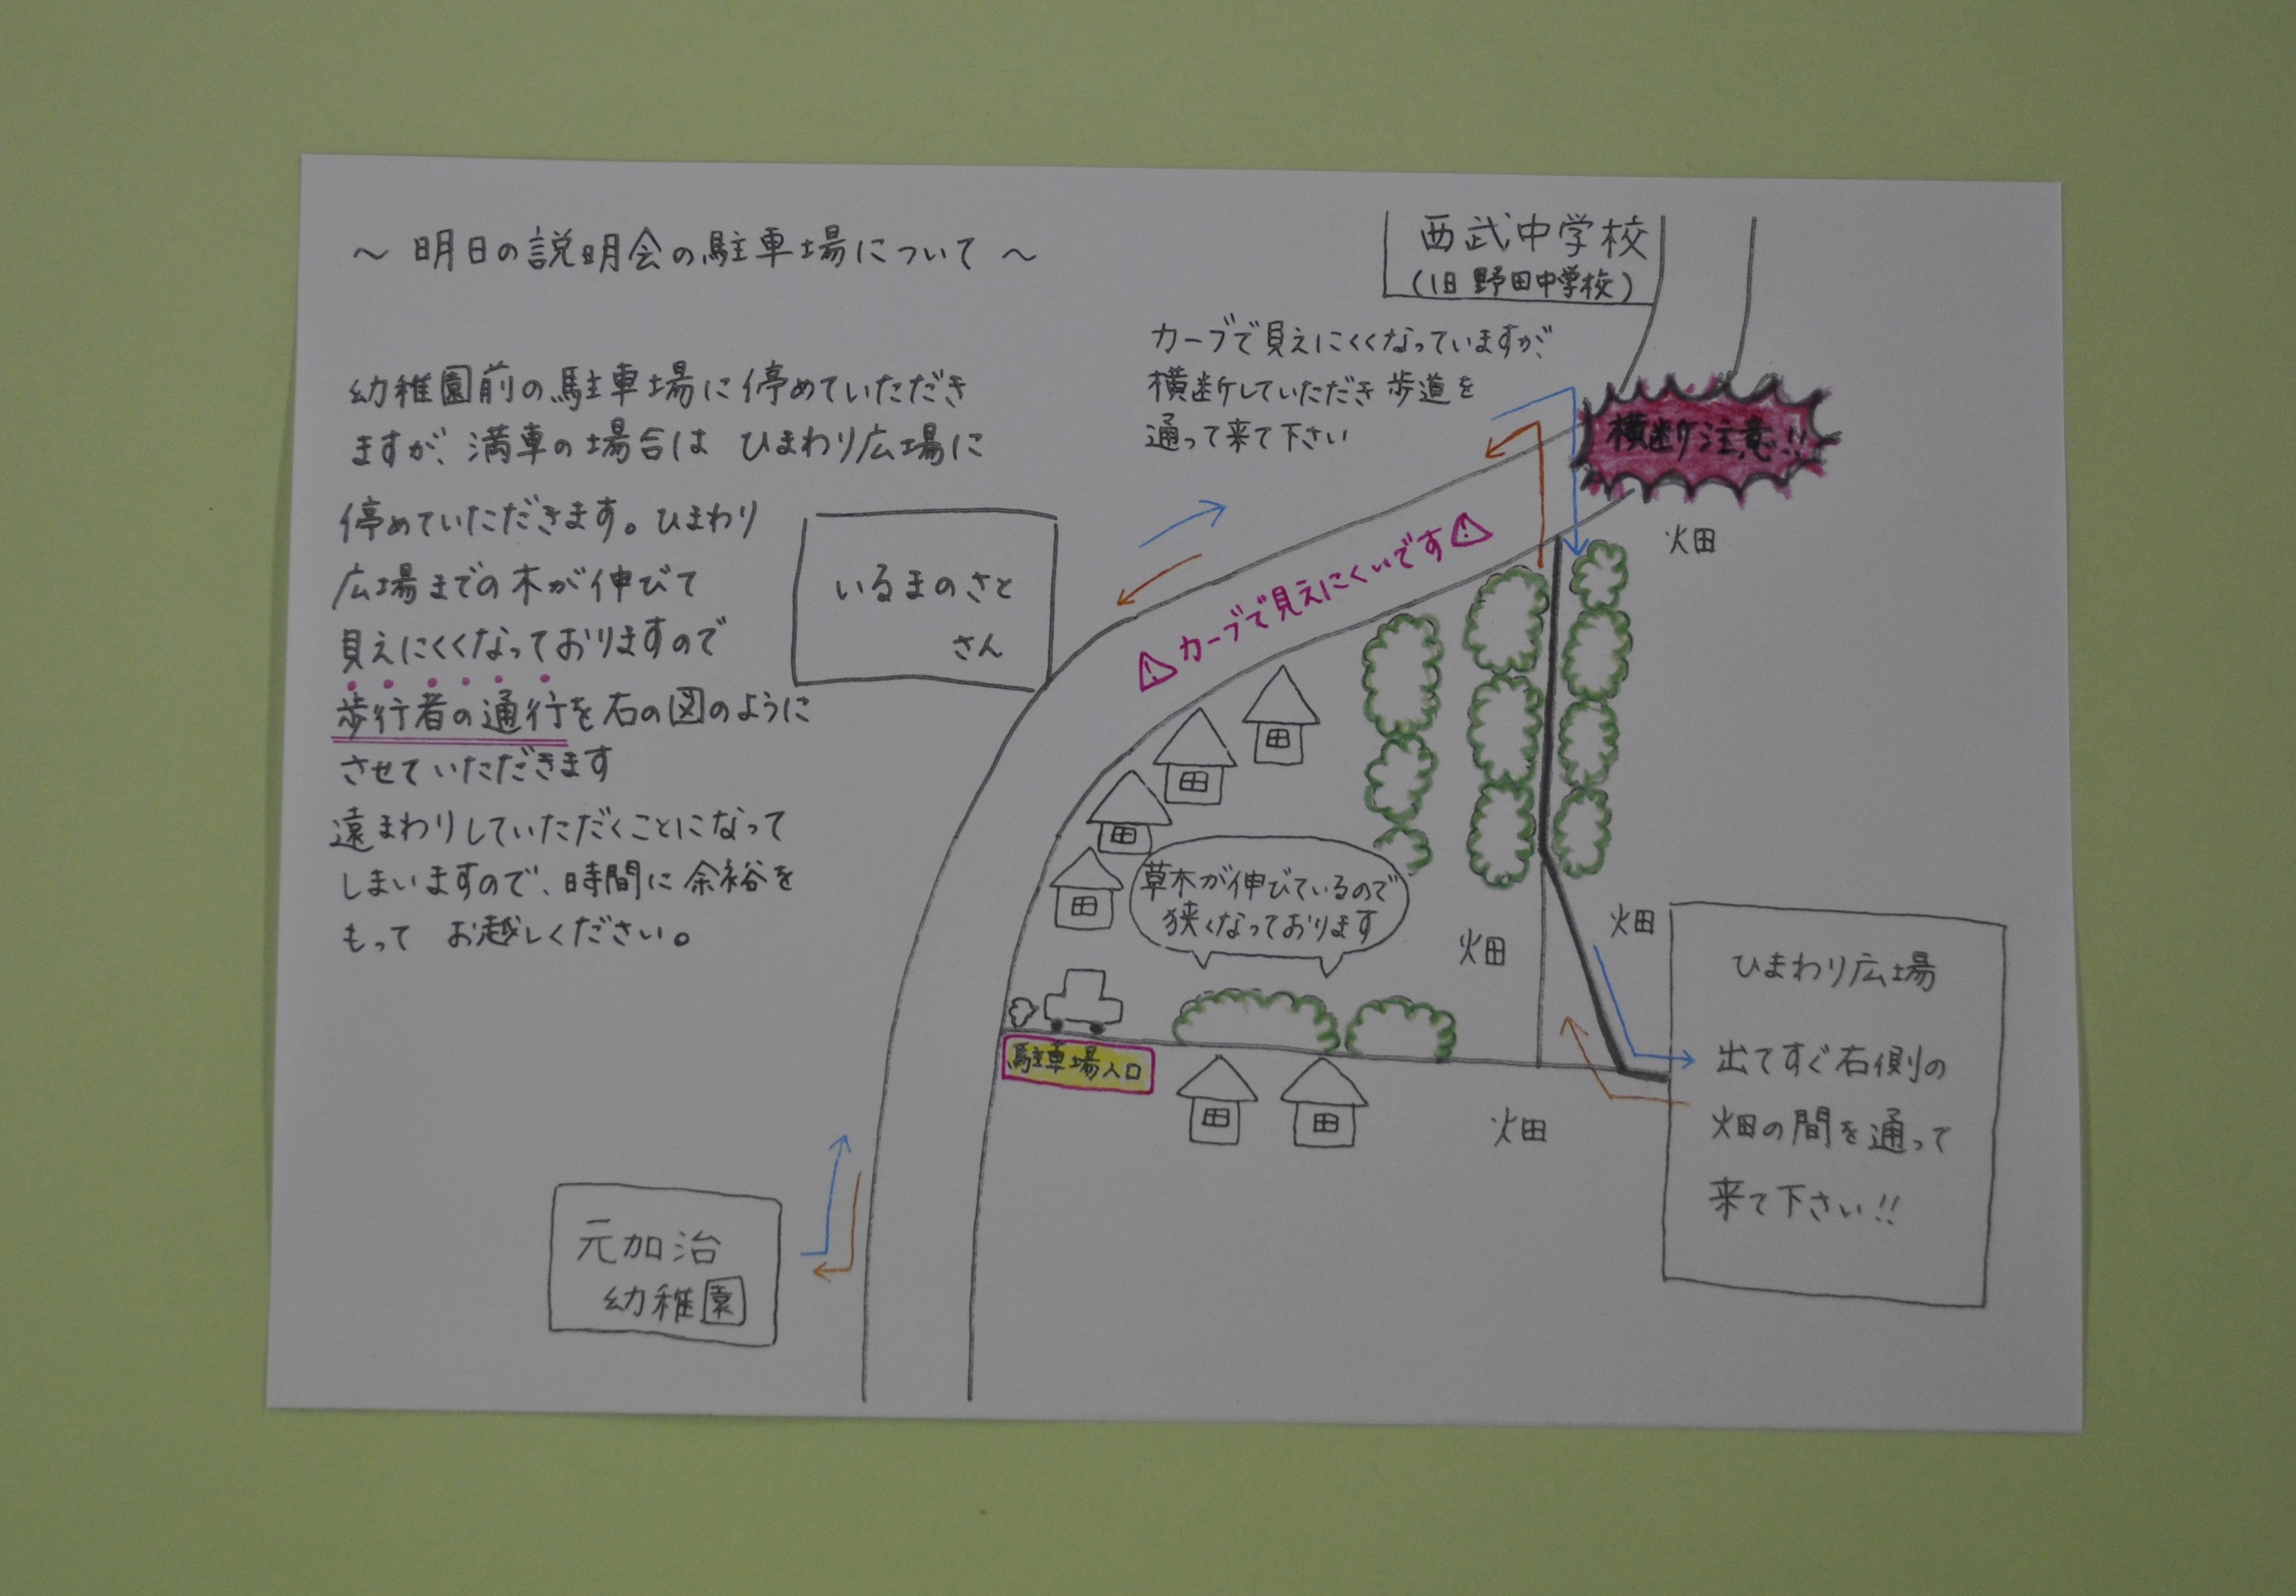 ～ 明日の説明会の駐車場について ～
幼稚園前の駐車場に停めていただき
ますが、満車の場合は ひまわり広場に
停めていただきます。ひまわり
広場までの木が伸びて
見えにくくなっておりますので
歩行者の通行を右の図のように
させていただきます
遠まわりしていただくことになって
しまいますので、時間に余裕を
もって お越しください。
西武中学校
(旧 野田中学校)
カーブで見えにくくなっていますが、
横断していただき歩道を
通って来て下さい
横断注意!!
いるまのさと
さん
カーブで見えにくいです
畑
草木が伸びているので
狭くなっております
畑
畑
駐車場入口
畑
ひまわり広場
出てすぐ右側の
畑の間を通って
来て下さい!!
元加治
幼稚園